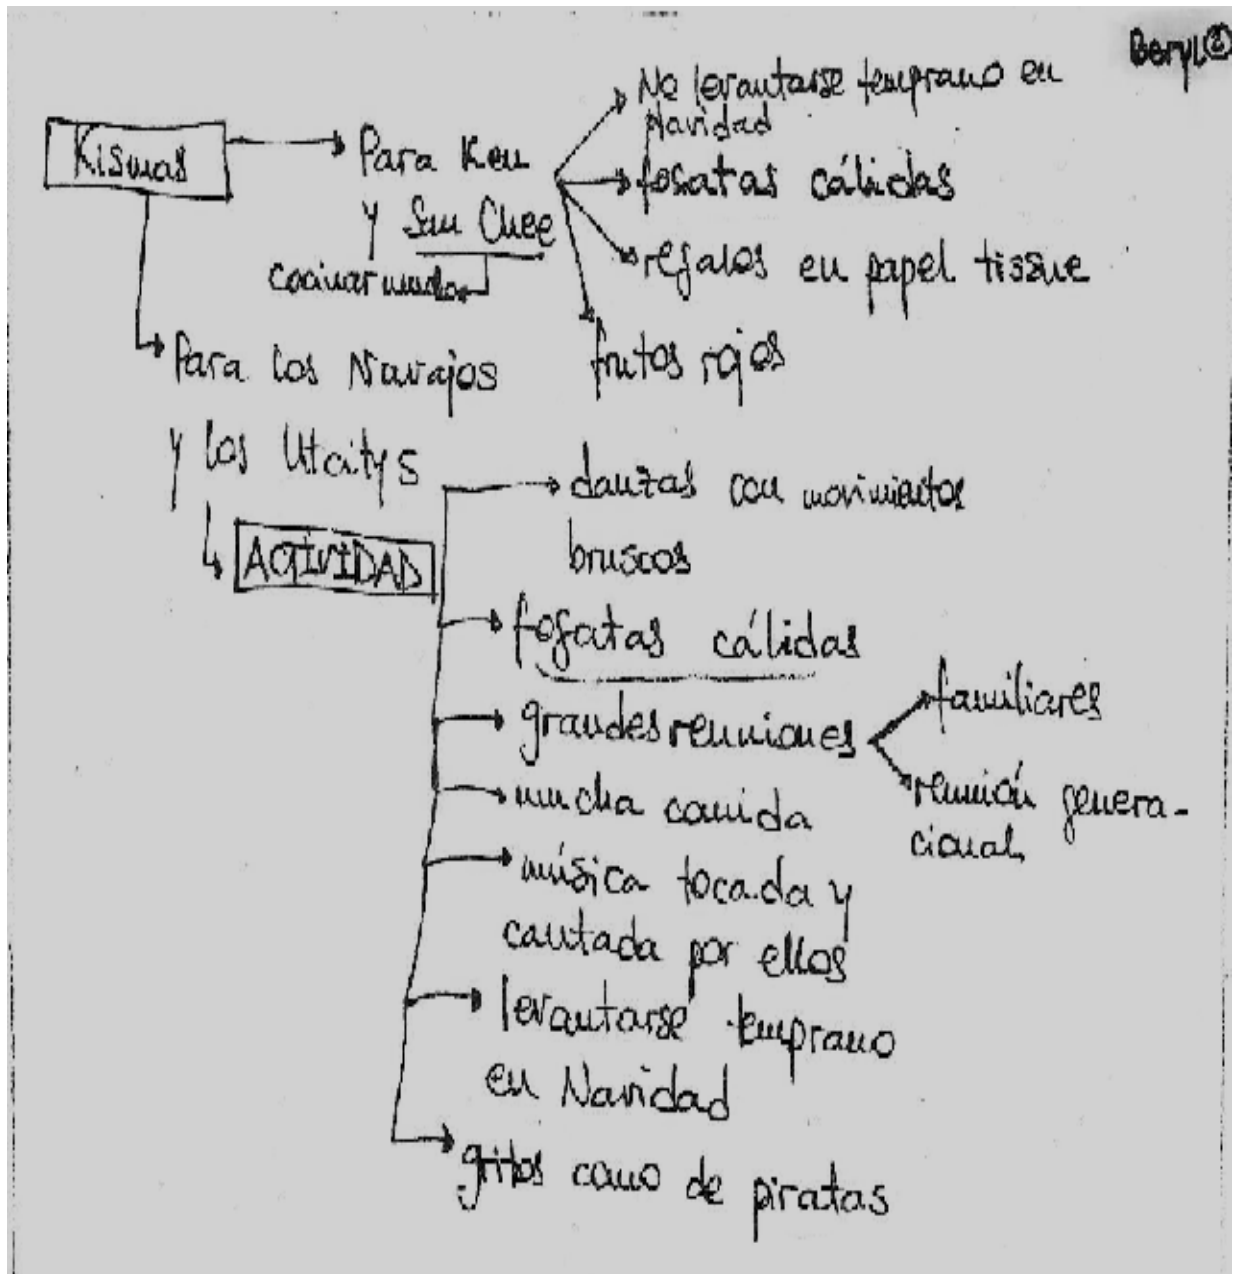 Beryl②
Kismas
Para Ken
y San Chee
cocinar mucho
No levantarse temprano en
Navidad
fogatas cálidas
regalos en papel tissue
frutos rojos
Para los Navajos
y los Utcitys
ACTIVIDAD
danzas con movimientos
bruscos
fogatas cálidas
grandes reuniones
familiares
reunión genera-
cional
mucha comida
música tocada y
cantada por ellos
levantarse temprano
en Navidad
gritos como de piratas